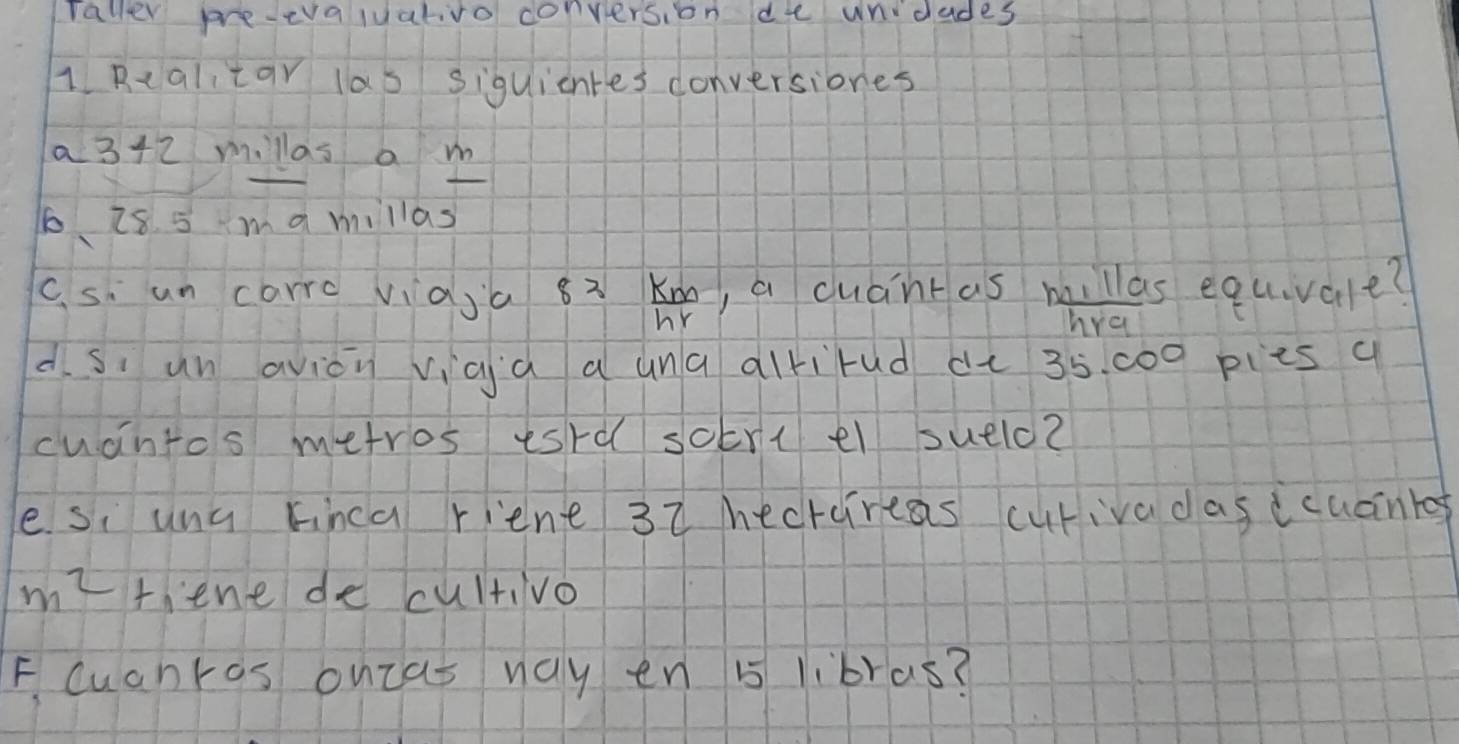 Taller pre-evaluativo conversion de unidades
1. Realizar las siguientes conversiones
a 342 millas a m
b. 28.5 m a millas
c. si un carro viaja 83 Km/hr, a cuántas millas/hra equivale?
d. Si un avión viaja a una altitud de 35.000 pies a
cuántos metros está sobre el suelo?
e. Si una finca tiene 32 hectáreas cutivadas ¿cuántos
m² tiene de cultivo
F. Cuantas onzas hay en 15 libras?